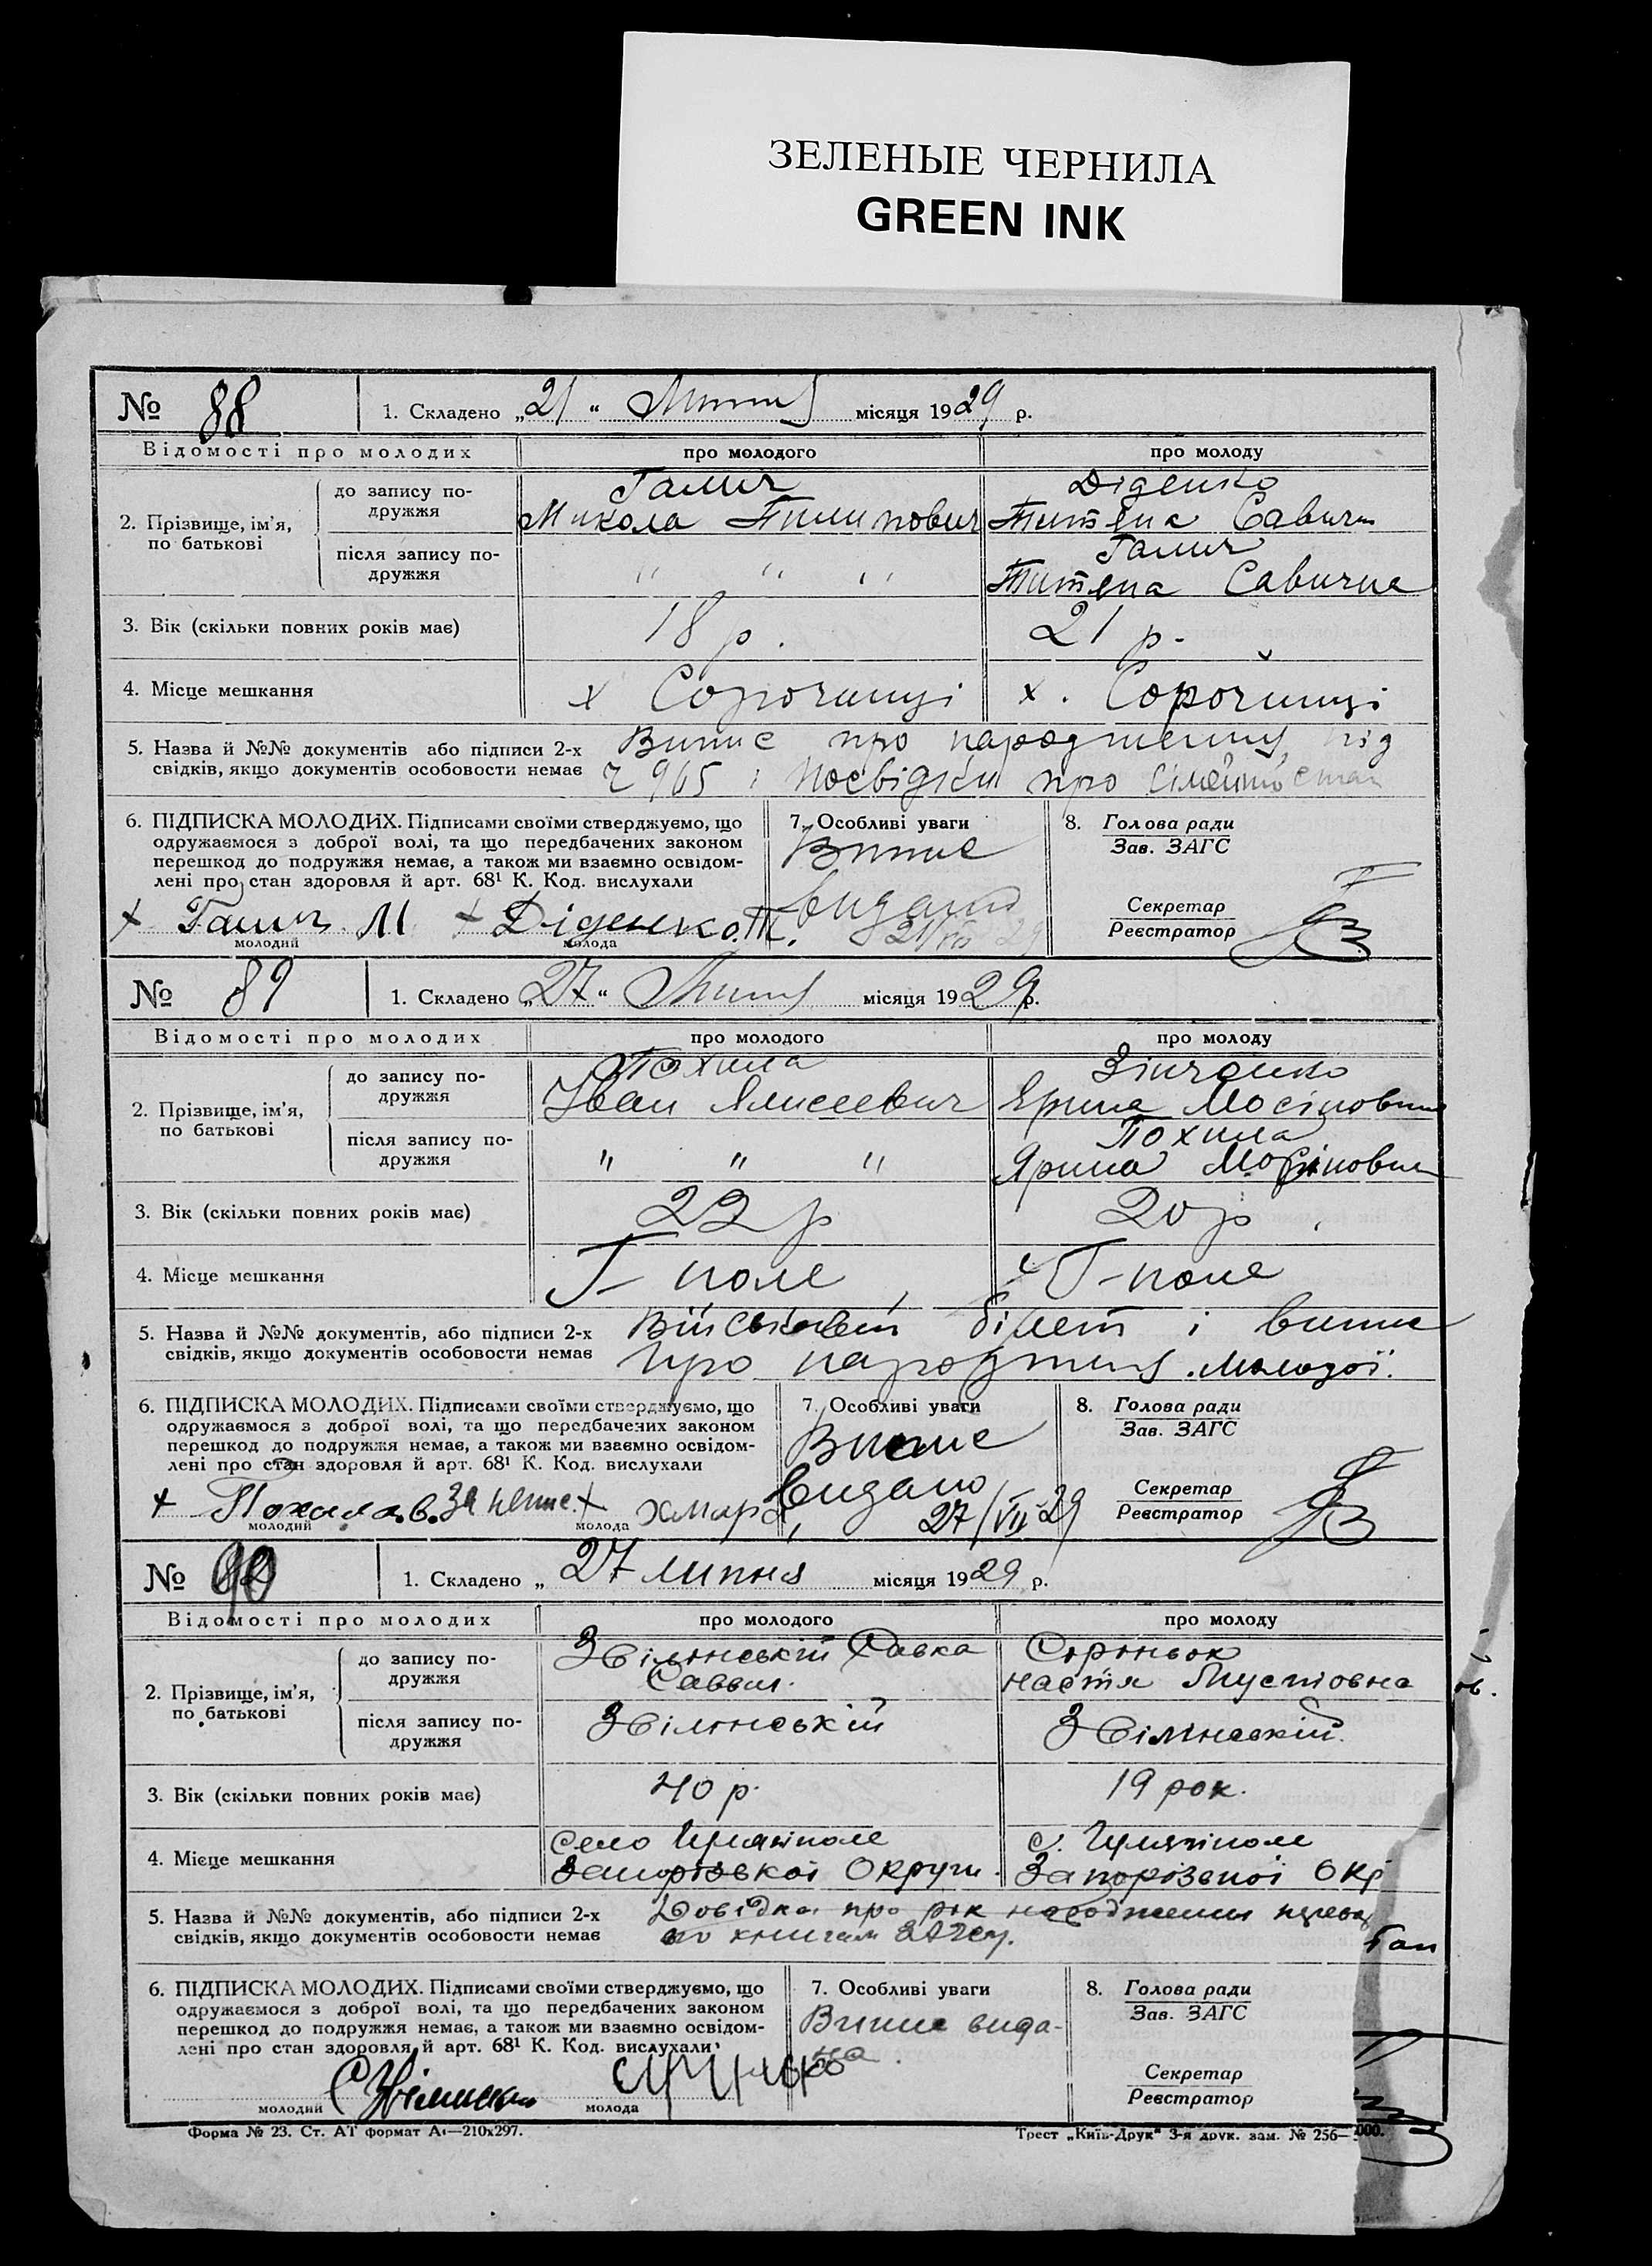 ЗЕЛЕНЫЕ ЧЕРНИЛА
GREEN INK
№ 88 1. Складено „21“ Липня місяця 1929 р.
Відомості про молодих про молодого про молоду
2. Прізвище, ім'я, по батькові
до запису подружжя
Галич Діденко
Микола Пилипович Титяна Савичн
після запису подружжя
" " " Галич
Титяна Савична
3. Вік (скільки повних років має) 18 р. 21 р.
4. Місце мешкання х Сорочинці х. Сорочинці
5. Назва й №№ документів або підписи 2-х Випис про народження, під
свідків, якщо документів особовости немає 965 і посвідки про сімейно стан
6. ПІДПИСКА МОЛОДИХ. Підписами своїми стверджуємо, що
одружаємося з доброї волі, та що передбачених законом
перешкод до подружжя немає, а також ми взаємно освідом-
лені про стан здоровля й арт. 68¹ К. Код. вислухали
+ Галич М + Діденко Т.
молодий молода
7. Особливі уваги
Випис
видано
21/VII 29
8. Голова ради
Зав. ЗАГС
Секретар
Реєстратор
№ 89 1. Складено „27“ Липня місяця 1929 р.
Відомості про молодих про молодого про молоду
2. Прізвище, ім'я, по батькові
до запису подружжя
Похила Зінченко
Иван Ялисеевич Ярина Мосіповна
після запису подружжя
" " " Похила
Ярина Мосіповн
3. Вік (скільки повних років має) 22 р 20 р.
4. Місце мешкання Г-поле Г-поле
5. Назва й №№ документів, або підписи 2-х Військовий білет і випис
свідків, якщо документів особовости немає про народження молодої.
6. ПІДПИСКА МОЛОДИХ. Підписами своїми стверджуємо, що
одружаємося з доброї волі, та що передбачених законом
перешкод до подружжя немає, а також ми взаємно освідом-
лені про стан здоровля й арт. 68¹ К. Код. вислухали
+ Похила. За непис. + хмара
молодий молода
7. Особливі уваги
Випис
видано
27/VII 29
8. Голова ради
Зав. ЗАГС
Секретар
Реєстратор
№ 90 1. Складено „ 27 липня місяця 1929 р.
Відомості про молодих про молодого про молоду
2. Прізвище, ім'я, по батькові
до запису подружжя
Звілінській Савка
Саввич. настя
після запису подружжя
Звілінській Звілінській.
3. Вік (скільки повних років має) 40 р. 19 рок.
4. Місце мешкання
Село Гуляйполе с. Гуляйполе
Запорізької Округи. Запорізької Окр
5. Назва й №№ документів, або підписи 2-х Довідка про рік народження
свідків, якщо документів особовости немає по книгам
6. ПІДПИСКА МОЛОДИХ. Підписами своїми стверджуємо, що
одружаємося з доброї волі, та що передбачених законом
перешкод до подружжя немає, а також ми взаємно освідом-
лені про стан здоровля й арт. 68¹ К. Код. вислухали
молодий молода
7. Особливі уваги
Випис вида-
на.
8. Голова ради
Зав. ЗАГС
Секретар
Реєстратор
Форма № 23. Ст. АТ формат А₄—210х297. Трест „Київ-Друк“ 3-я друк. зам. № 256—